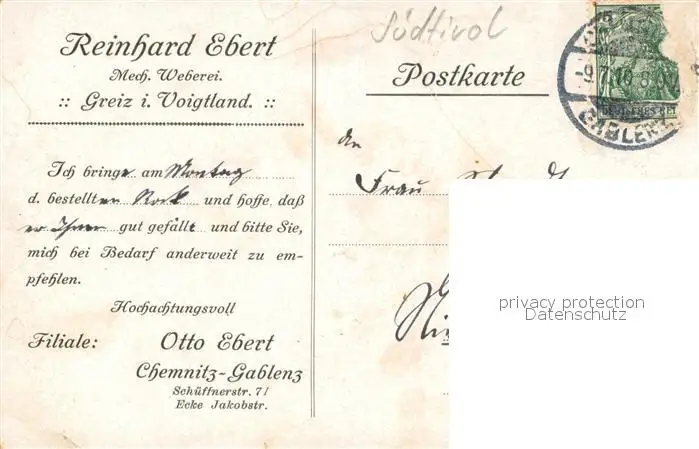 Reinhard Ebert
Mech. Weberei.
:: Greiz i. Voigtland. ::
Ich bringe am Montag
d. bestellten Rock und hoffe, daß
er Ihnen gut gefällt und bitte Sie,
mich bei Bedarf anderweit zu em-
pfehlen.
Hochachtungsvoll
Filiale: Otto Ebert
Chemnitz-Gablenz
Schüffnerstr. 71
Ecke Jakobstr.
Südtirol
Postkarte
An
Frau
GABLENZ
privacy protection
Datenschutz